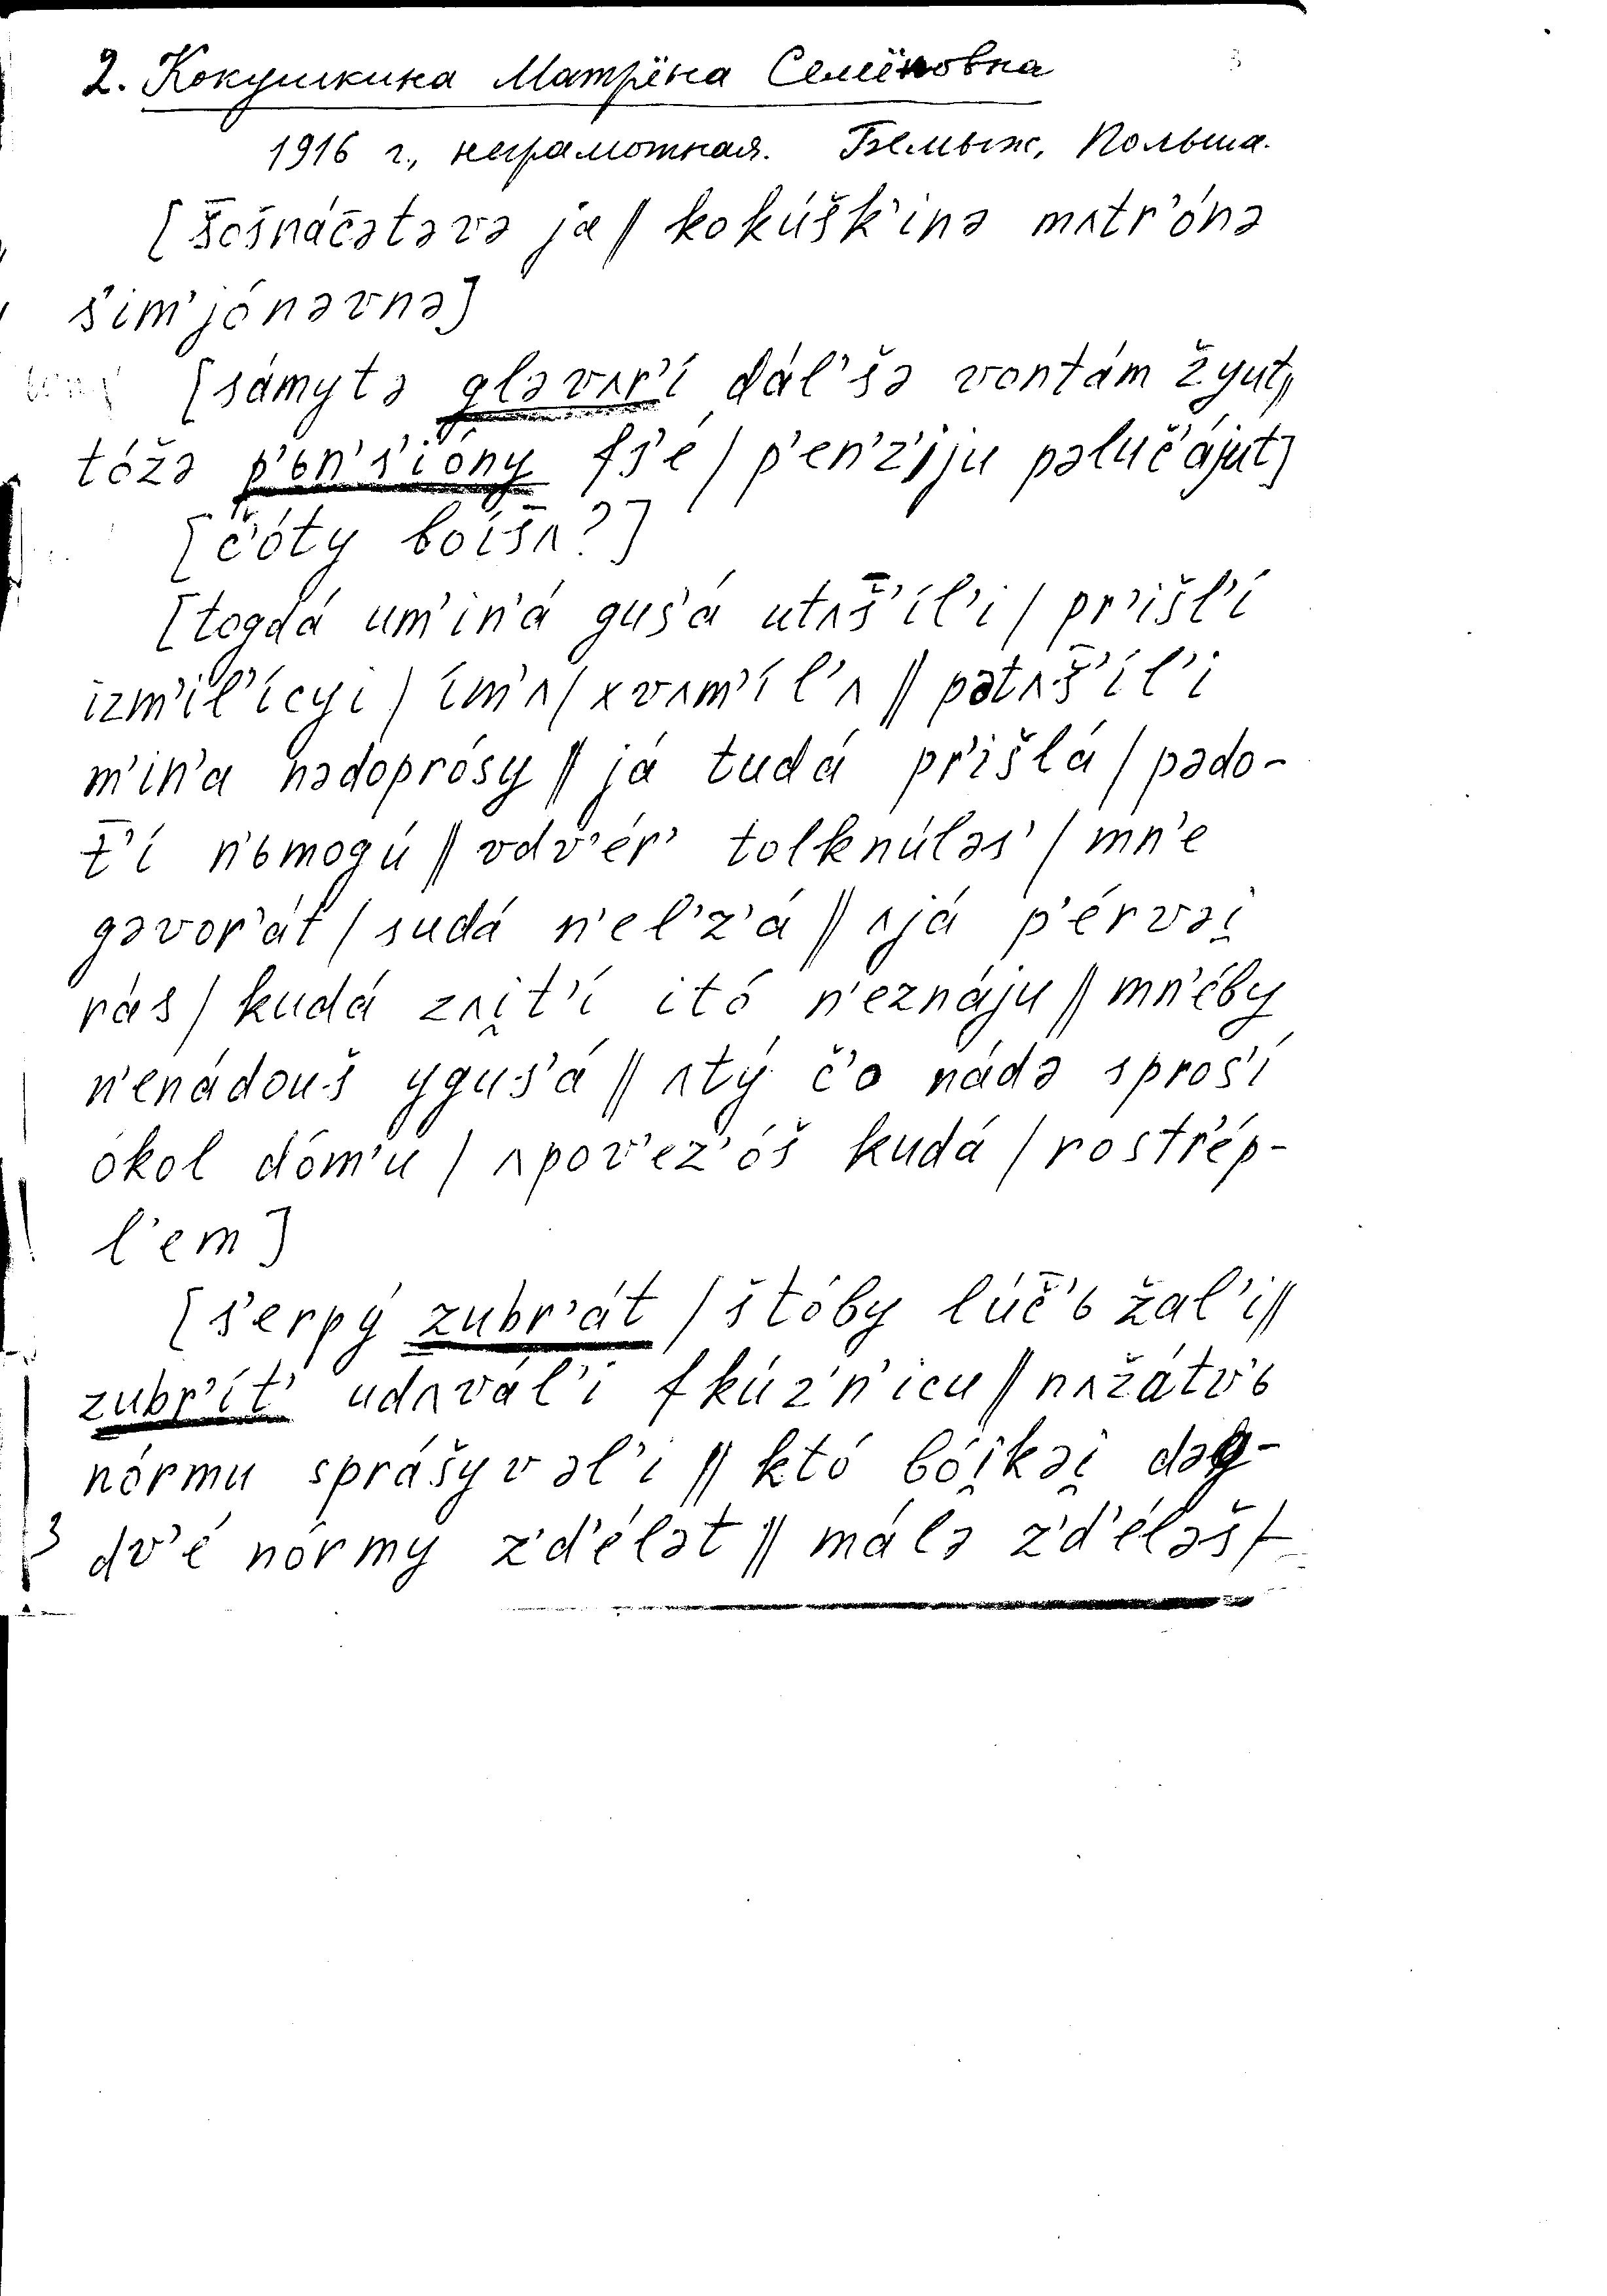 2. Кокушкина Матрёна Семёновна
1916 г., неграмотная. Гремыж, Польша.
[š̄ošnáč̄ətəvə ja ‖ kokúšk’inə mʌtr’ónə
s’im’jónəvnə]
[sámytə gləvʌr’í dál’šə vontám žyut‖
tóžə p’ьn’s’ióny fs’é / p’en’z’iju pəluč’ájut]
[č’óty boíš̄ʌ?]
[togdá um’in’á gus’á utʌš̄’íl’i / pr’išl’í
izm’il’ícyi / ím’ʌ / xvʌm’íl’ʌ ‖ pətʌš̄’íl’i
m’in’a nədoprósy ‖ já tudá pr’išlá / pədo-
t̄’í n’ьmogú ‖ vdv’ér’ tolknúləs’ / mn’e
gəvor’át / sudá n’el’z’á ‖ ʌjá p’érvəi̯
rás / kudá zʌi̯t’í itó n’eznáju ‖ mn’éby
n’enádouš ygus’á ‖ ʌtý č’o nádə spros’í
ókol dóm’u / ʌpov’ez’óš kudá / rostr’ép-
l’em]
[s’erpý zubr’át / štóby lúč̄’ь žal’i‖
zubr’ít’ udʌvál’i fkúz’n’icu ‖ nʌžátv’ь
nórmu sprášyvəl’i ‖ któ bói̯kəi̯ dəg-
dv’é nórmy z’d’élət ‖ málə z’d’éləš /